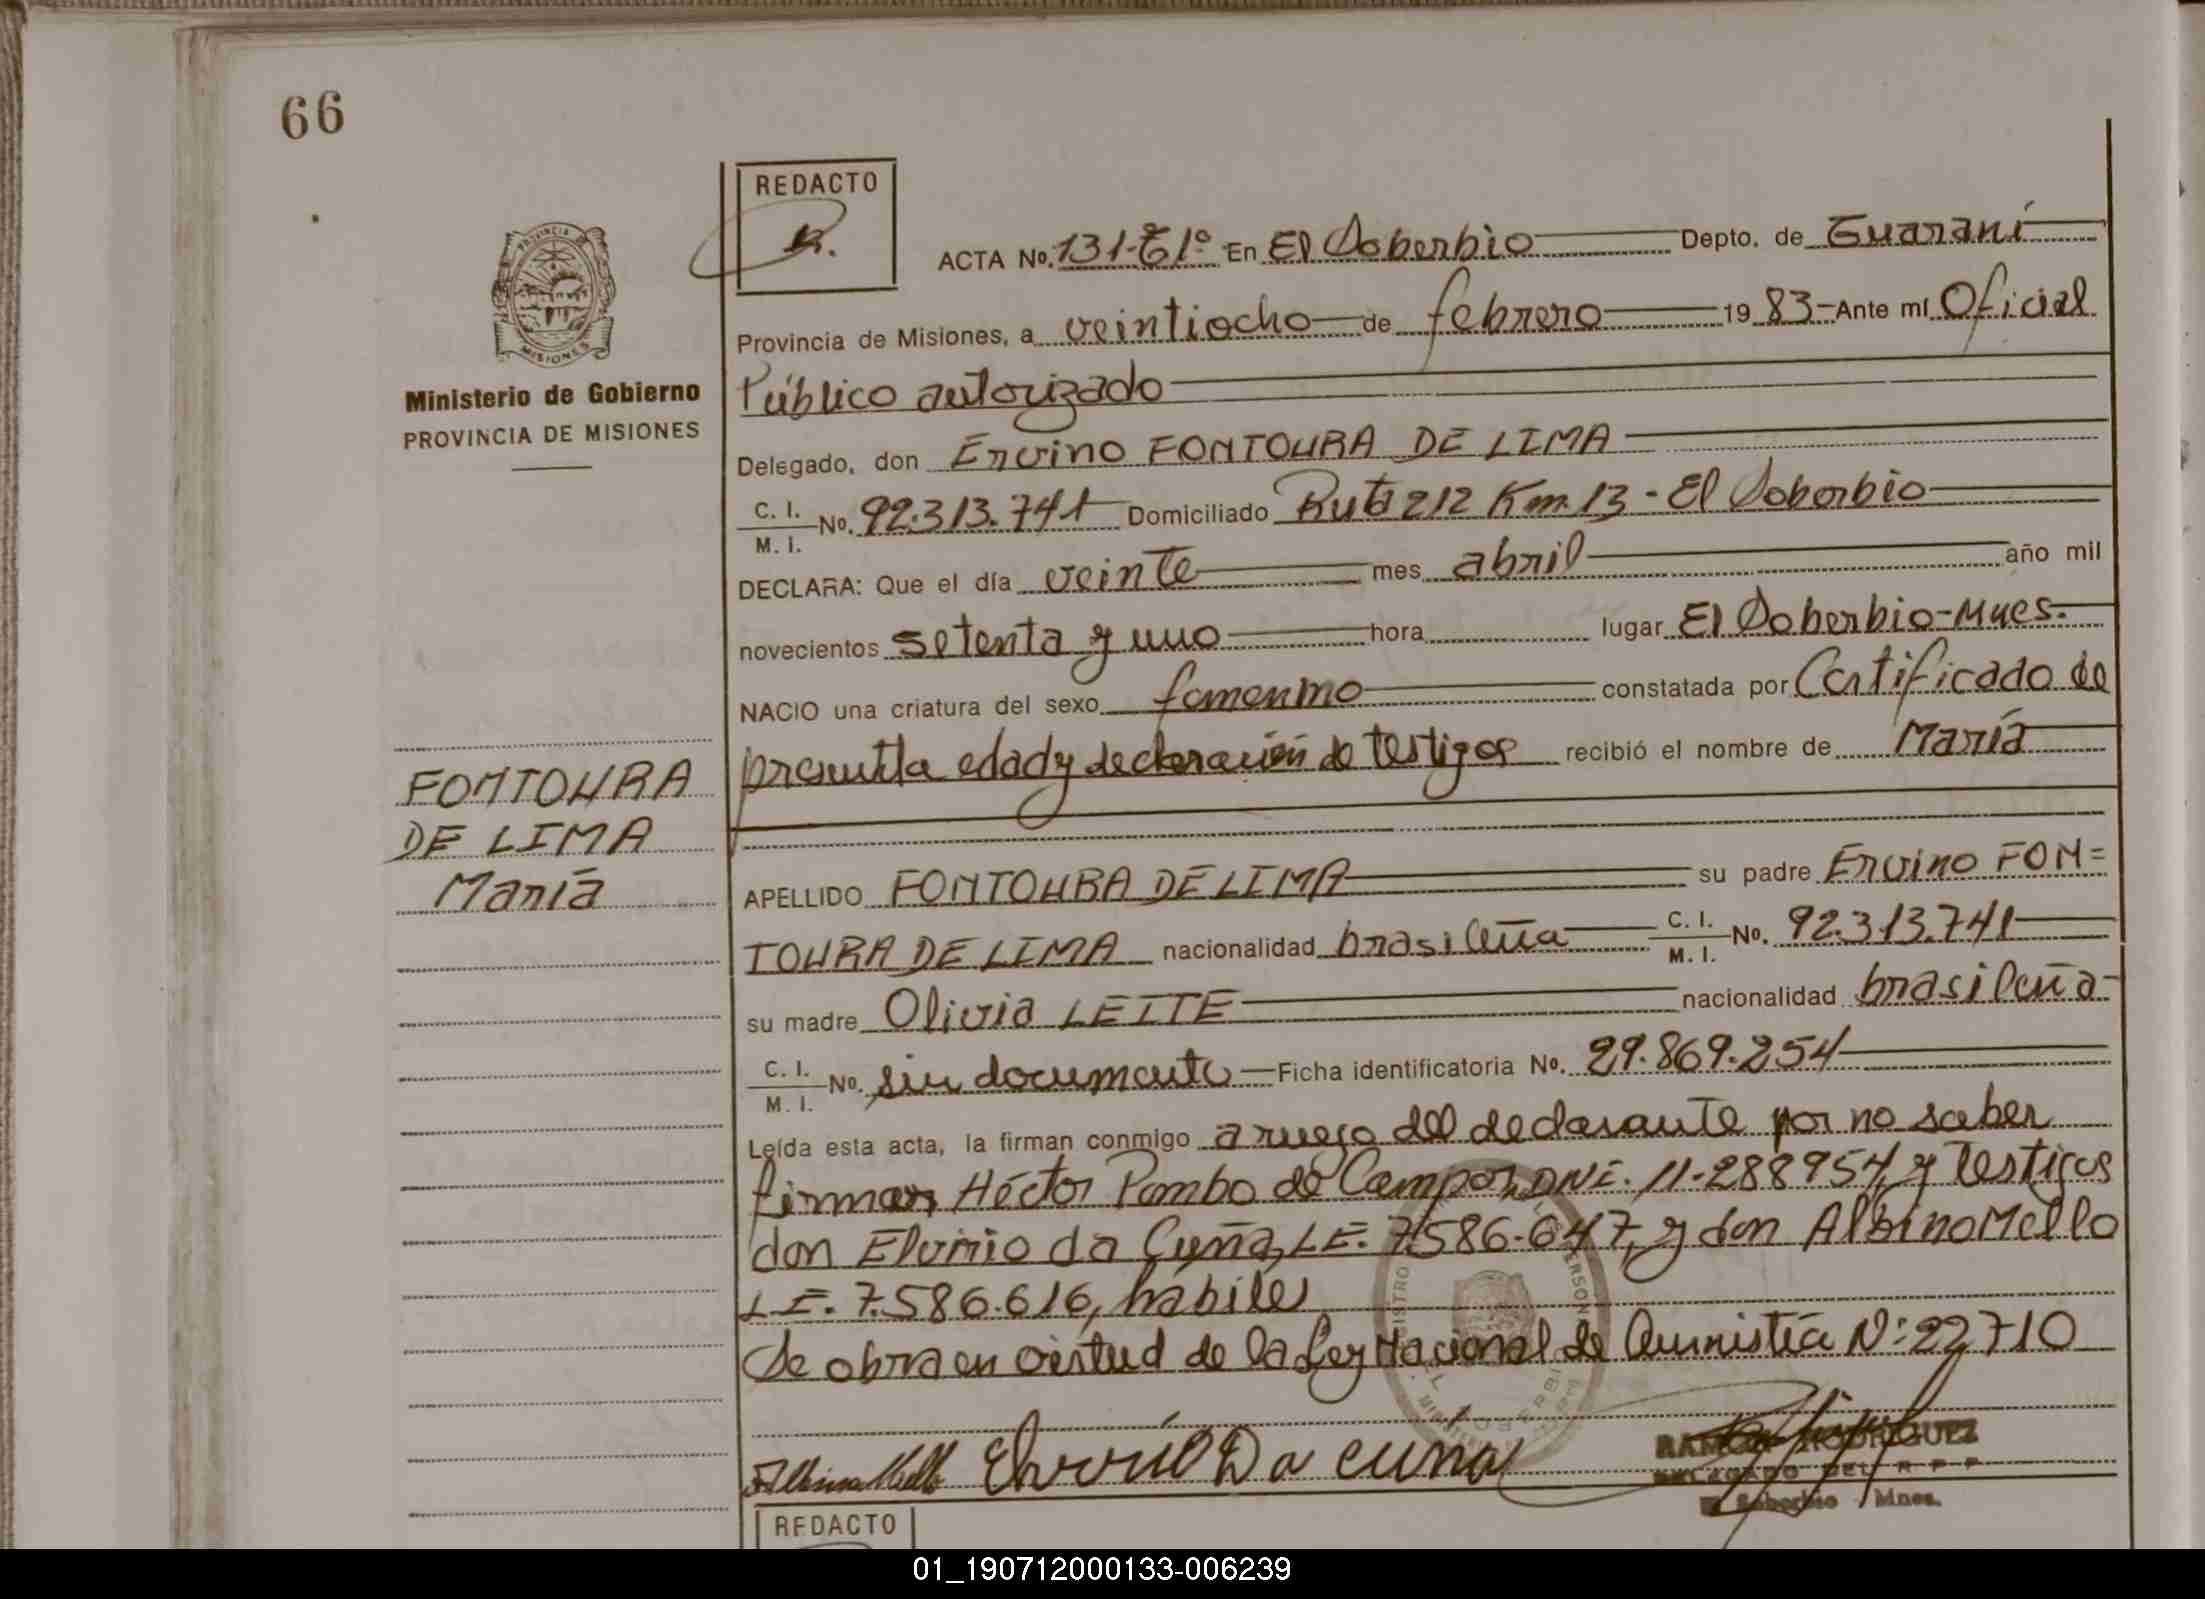 66
REDACTO
ACTA No. 131-T1º En El Soberbio Depto. de Guaraní
Provincia de Misiones, a veintiocho de febrero 19 83 Ante mí Oficial
Público autorizado
Ministerio de Gobierno
PROVINCIA DE MISIONES
Delegado, don Ervino FONTOURA DE LIMA
C. I. M. I. No. 92.313.741 Domiciliado Ruta 212 Km. 13 - El Soberbio
DECLARA: Que el día veinte mes abril año mil
novecientos setenta y uno hora lugar El Soberbio-Mnes.
NACIO una criatura del sexo femenino constatada por Certificado de
presunta edad y declaración de testigos recibió el nombre de María
FONTOURA
DE LIMA
María
APELLIDO FONTOURA DE LIMA su padre Ervino FON=
TOURA DE LIMA nacionalidad brasileña C. I. M. I. No. 92.313.741
su madre Olivia LEITE nacionalidad brasileña
C. I. M. I. No. sin documento Ficha identificatoria No. 29.869.254
Leída esta acta, la firman conmigo a ruego del declarante por no saber
firmar, Héctor Pombo de Campos, DNI. 11.288954, y testigos
don Elvirio da Cuña, LE. 7.586.647, y don Albino Mello
LE. 7.586.616, habiles
Se obra en virtud de la Ley Nacional de Amnistía Nº 22710
Albino Mello Da cuña
RAMON RODRIGUEZ
DELEGADO DEL R P P
El Soberbio Mnes.
REDACTO
01_190712000133-006239